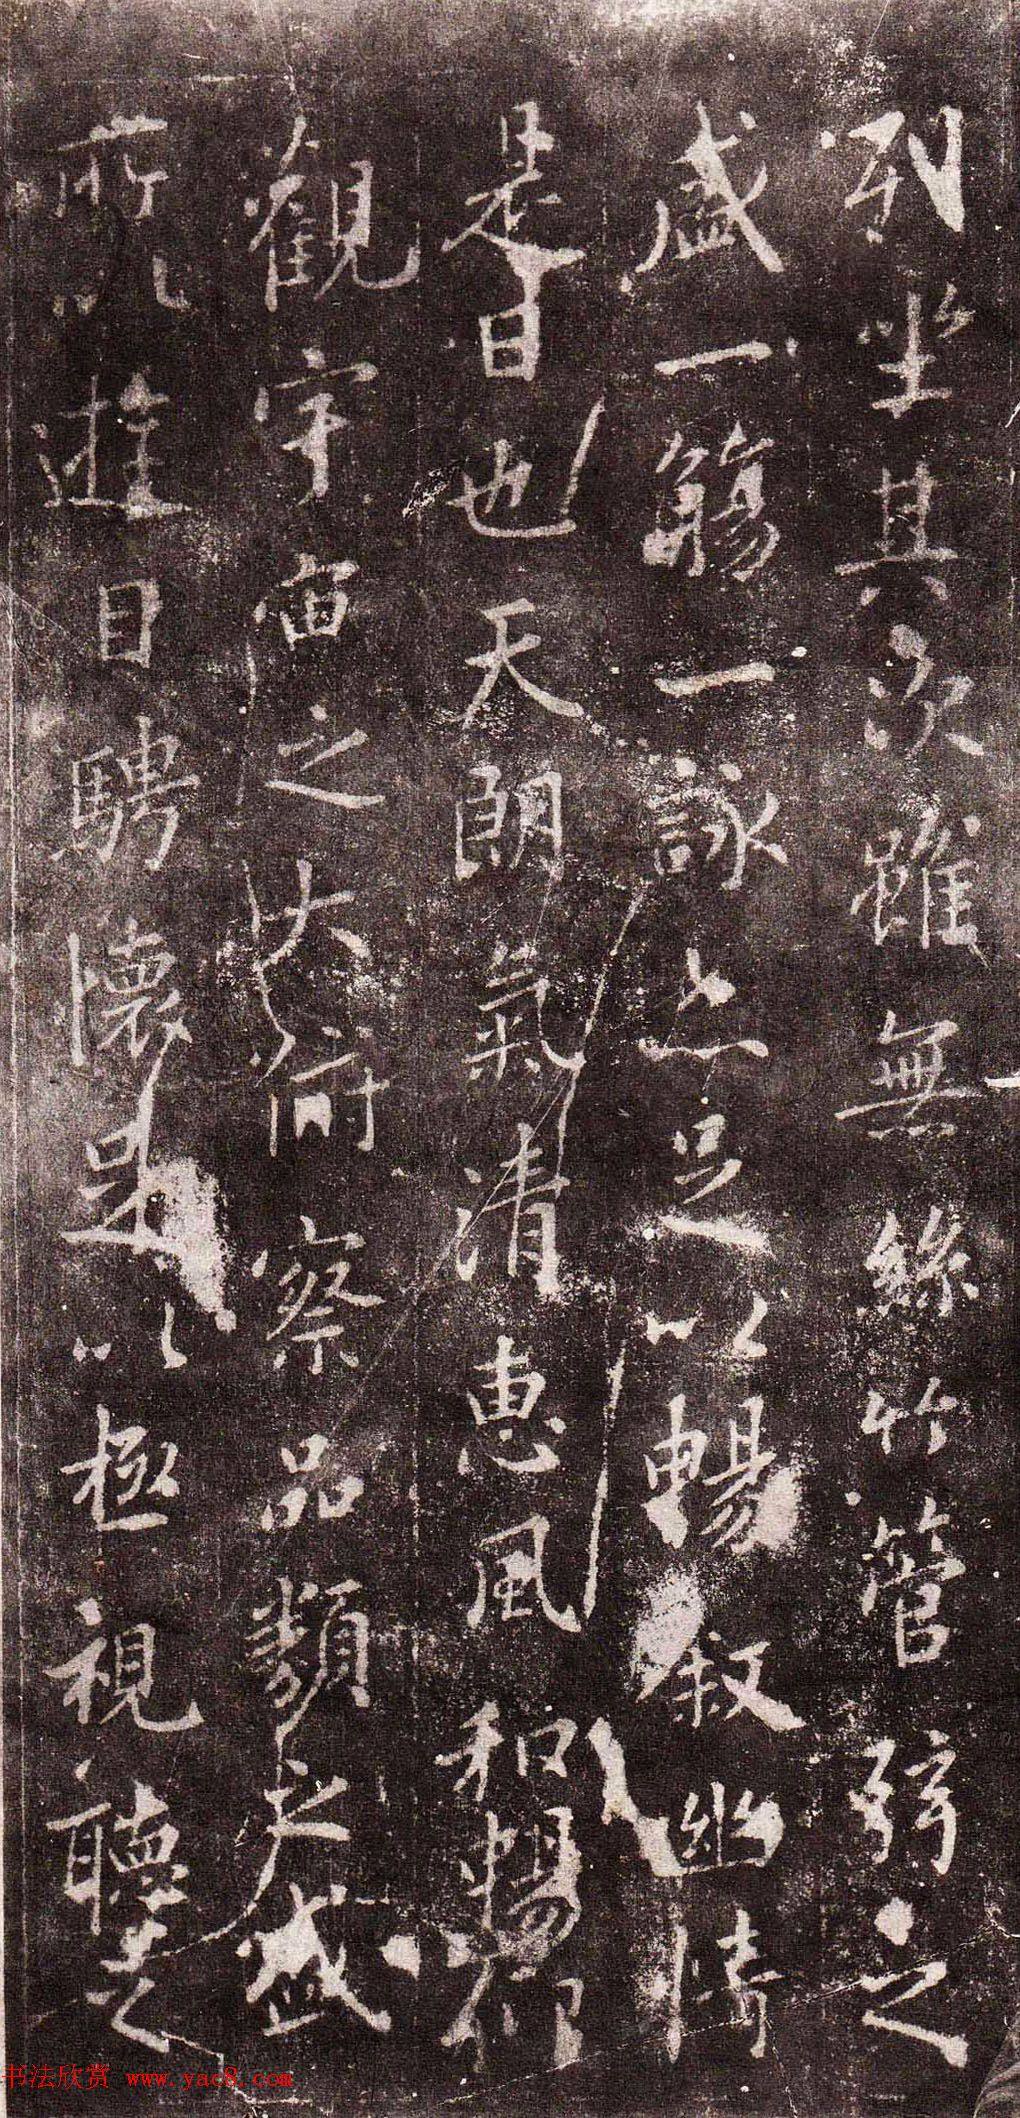 列坐其次雖無絲竹管弦之
盛一觴一詠亦足以暢敘幽情
是日也天朗氣清惠風和暢仰
觀宇宙之大俯察品類之盛
所以遊目騁懷足以極視聽之
书法欣赏 www.yac8.com